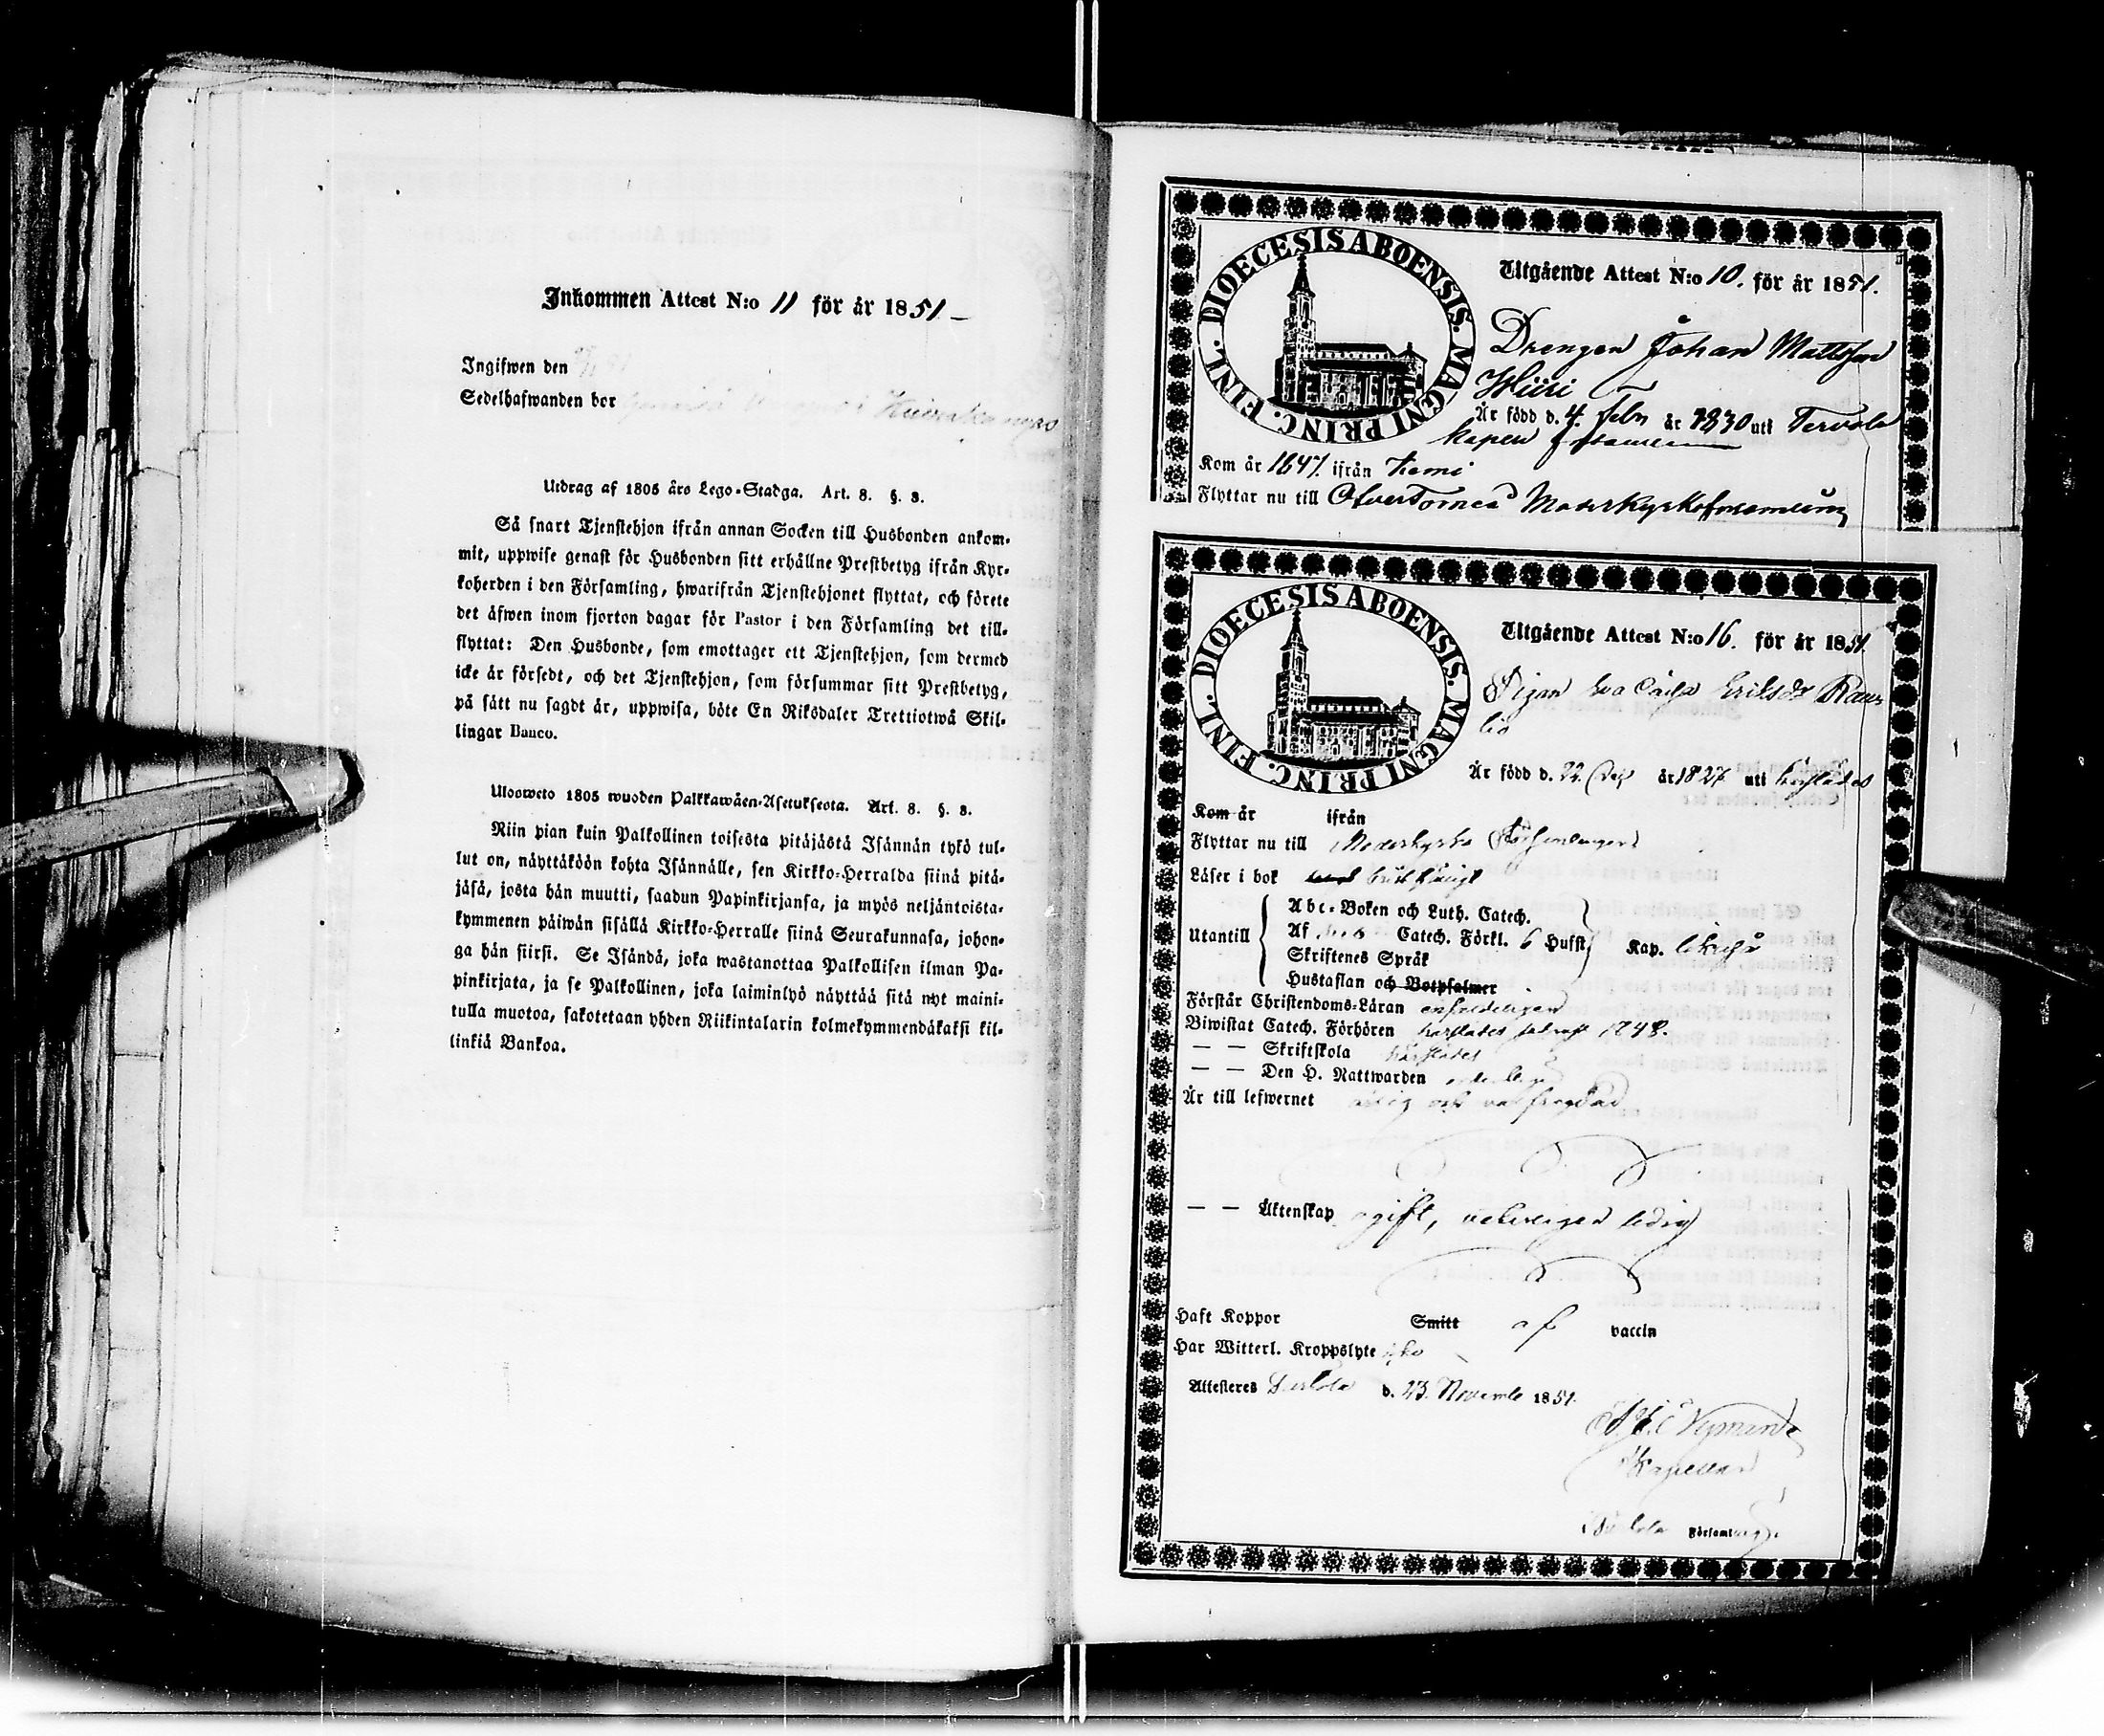 Inkommen Attest N:o 11 för år 1851
Ingifwen den
Sedelhafwanden bor
Utdrag af 1805 års Lego-Stadga. Art. 8. §. 3.
Så snart Tjenstehjon ifrån annan Socken till Husbonden ankom-
mit, uppwise genast för Husbonden sitt erhållne Prestbetyg ifrån Kyr-
koherden i den Församling, hwarifrån Tjenstehjonet flyttat, och förete
det äfwen inom fjorton dagar för Pastor i den Församling det till-
flyttat: Den Husbonde, som emottager ett Tjenstehjon, som dermed
icke är försedt, och det Tjenstehjon, som försummar sitt Prestbetyg,
på sätt nu sagdt är, uppwisa, böte En Riksdaler Trettiotwå Skil-
lingar Banco.
Ulosweto 1805 wuoden Palkkawäen-Asetuksesta. Art. 8. §. 3.
Niin pian kuin Palkollinen toisesta pitäjästä Isännän tykö tul-
lut on, näyttäköön kohta Isännälle, sen Kirkko-Herralda siinä pitä-
jäsä, josta hän muutti, saadun Papinkirjansa, ja myös neljäntoista-
kymmenen päiwän sisällä Kirkko-Herralle siinä Seurakunnasa, johon-
ga hän siirsi. Se Isändä, joka wastanottaa Palkollisen ilman Pa-
pinkirjata, ja se Palkollinen, joka laiminlyö näyttää sitä nyt maini-
tulla muotoa, sakotetaan yhden Riikintalarin kolmekymmendäkaksi kil-
linkiä Bankoa.
DIOECESIS ABOENSIS. MAGNI PRINC. FINL.
Utgående Attest N:o 10. för år 1851.
Drengen Johan Mattsson
Wiiri
Är född d. 4. Febr år 1830 uti Tervola
Kapell
Kom år 1847. ifrån Kemi
Flyttar nu till ÖfverTorneå Moderkyrkoförsamling
DIOECESIS ABOENSIS. MAGNI PRINC. FINL.
Utgående Attest N:o 16. för år 1851
Pigan Eva Cajsa Eriksdr
lio
Är född d. 22. år 1827 uti härstädes
Kom år ifrån
Flyttar nu till Moderkyrko Församlingen
Läser i bok
Utantill
Abc-Boken och Luth. Catech.
Af Catech. Förkl. 6 Hufst.
Skriftenes Språk
Hustaflan och Botpsalmer
Kap.
Förstår Christendoms-Läran
Biwistat Catech. Förhören härstädes 1848.
— — Skriftskola härstädes
— — Den H. Nattwarden
Är till lefwernet och
— — Äktenskap ogift, ledig
Haft Koppor Smitt af vaccin
Har Witterl. Kroppslyte icke
Attesteres d. 23. Novemb 1851.
Nyman
Kapellan
Församling